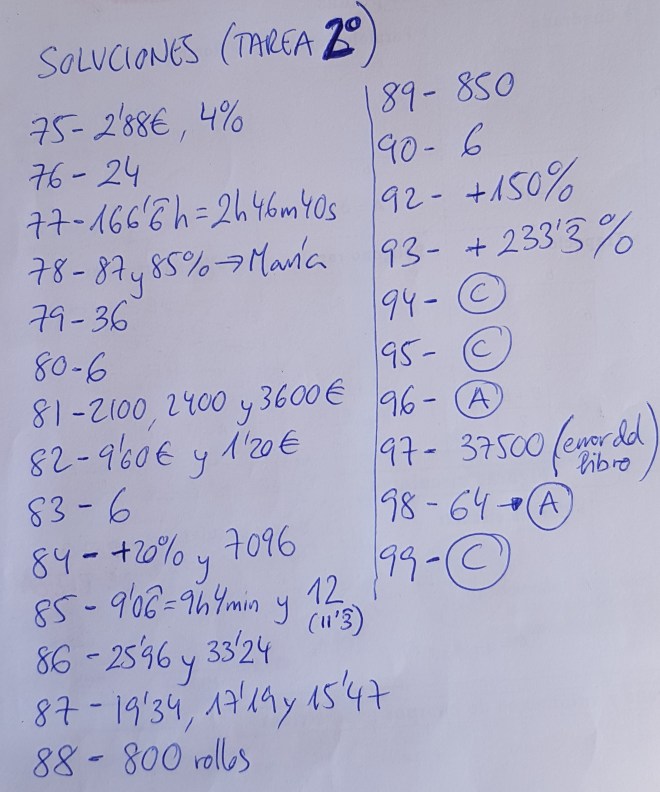 SOLUCIONES (TAREA 2º)
75- 2'88€, 4%
76- 24
77- 166'6̂ h = 2h 46m 40s
78- 87 y 85% → María
79- 36
80- 6
81- 2100, 2400 y 3600€
82- 9'60€ y 1'20€
83- 6
84- +20% y 7096
85- 9'06̂ = 9h 4min y 12
(11'3̂)
86- 25'96 y 33'24
87- 19'34, 17'19 y 15'47
88- 800 rollos
89- 850
90- 6
92- +150%
93- +233'3̂%
94- C
95- C
96- A
97- 37500 (error del
libro)
98- 64 → A
99- C